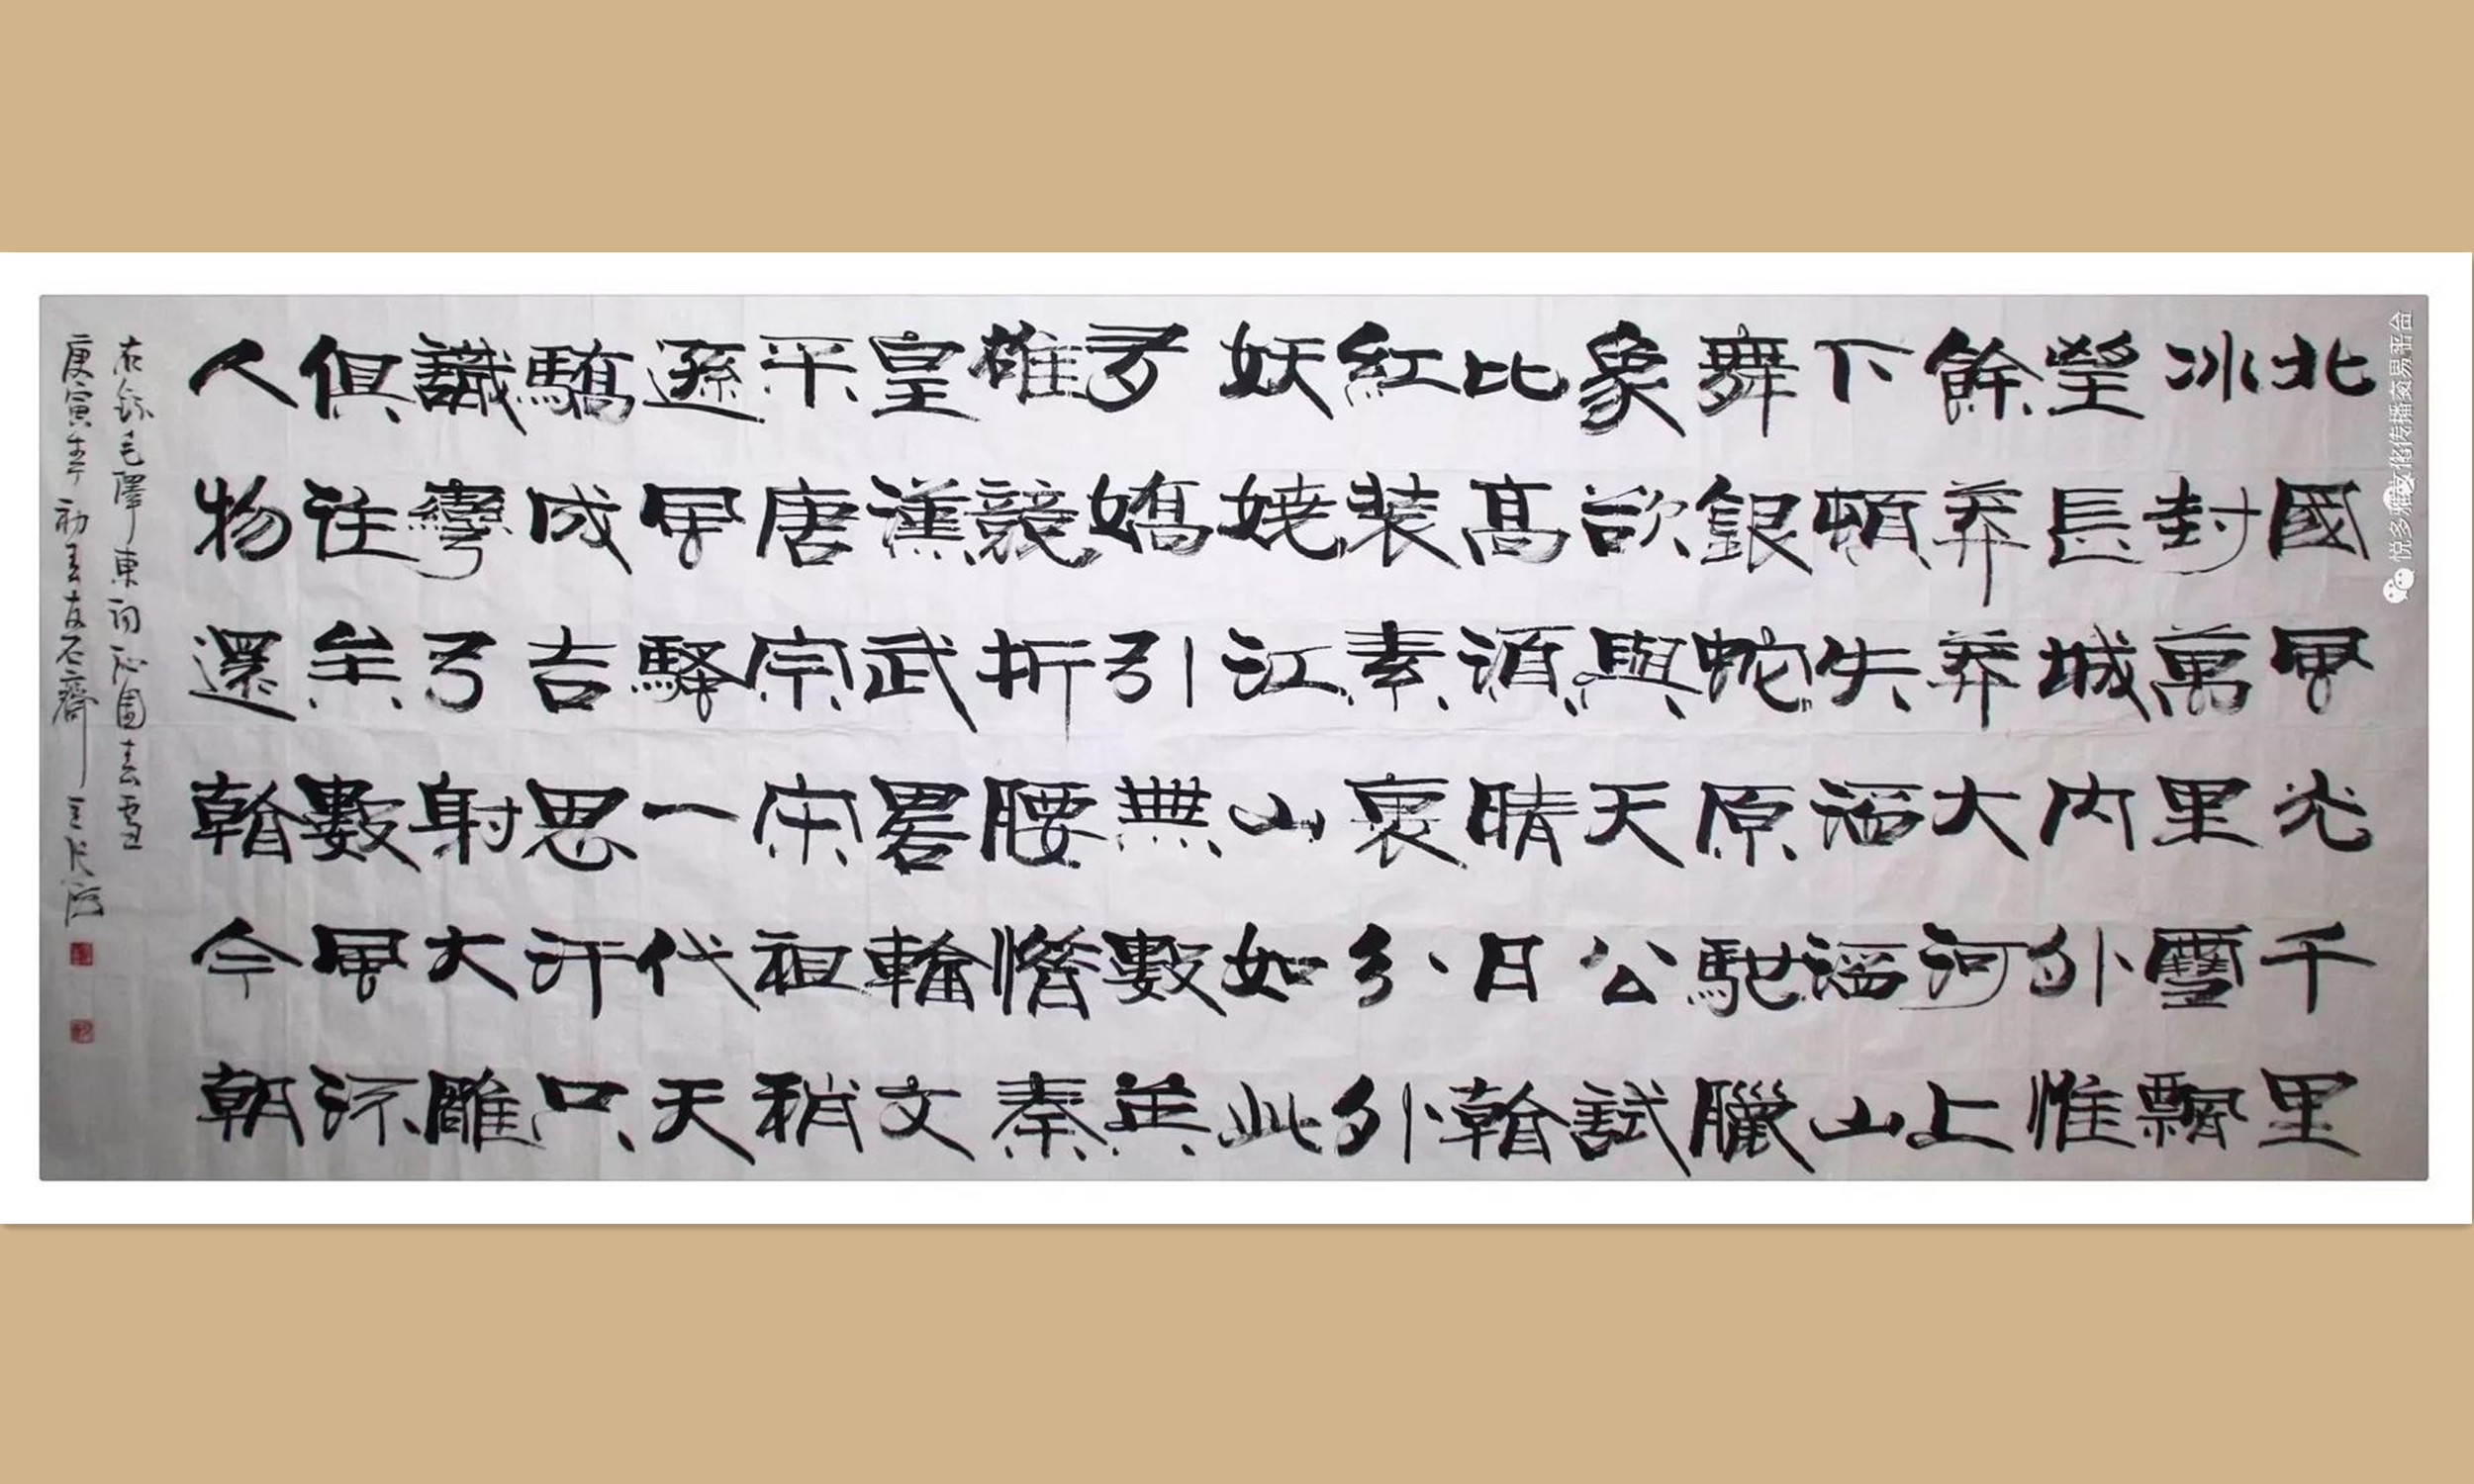 北國風光千里
冰封萬里雪飄
望長城內外惟
餘莽莽大河上
下頓失滔滔山
舞銀蛇原馳臘
象欲與天公試
比高湏晴日看
紅裝素裹分外
妖嬈江山如此
多嬌引無數英
雄競折腰惜秦
皇漢武畧輸文
采唐宗宋祖稍
遜風騷一代天
驕成吉思汗只
識彎弓射大雕
俱往矣數風流
人物還看今朝
右錄毛澤東詞沁園春雪
庚寅年初春友石齋主
悦多雅文化传播交易平台